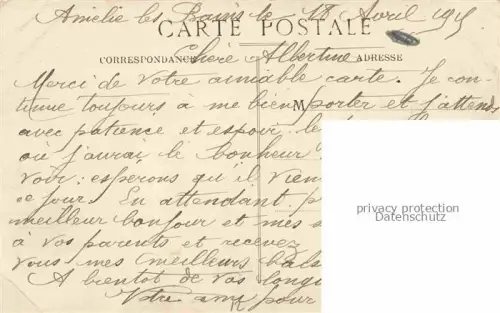 Amélie les Bains le 18 Avril 1915
CARTE POSTALE
CORRESPONDANCE
ADRESSE
Chère Albertine
Merci de votre aimable carte. Je con-
tinue toujours à me bien porter et j'attends
M
avec patience et espoir le
où j'aurai le bonheur
voir : esperons qu'il vien
ce jour. En attendant
meilleur bonjour et mes
à vos parents et recevez
vous mes meilleurs bais
A bientôt de vos longu
Votre ami pour
privacy protection
Datenschutz